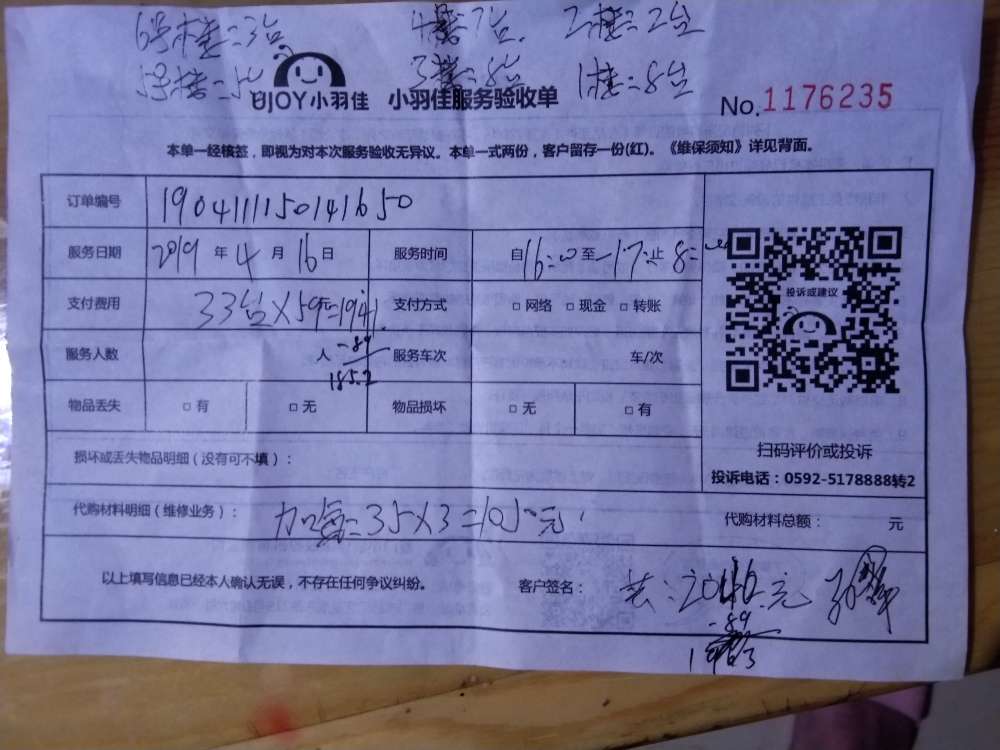 6号楼=3台 4楼=7台. 2楼=2台
5号楼=5台 3楼=8台 1楼=8台
UJOY小羽佳 小羽佳服务验收单 No.1176235
本单一经核签，即视为对本次服务验收无异议。本单一式两份，客户留存一份(红)。《维保须知》详见背面。
订单编号 1904111150141650
服务日期 2019 年 4 月 16 日 服务时间 自 16:00 至 17: 止 8=
支付费用 33台×59元=1941. 支付方式 □ 网络 □ 现金 □ 转账
服务人数 人 -89 服务车次 车/次
1852
物品丢失 □ 有 □ 无 物品损坏 □ 无 □ 有
投诉或建议
扫码评价或投诉
投诉电话：0592-5178888转2
损坏或丢失物品明细（没有可不填）：
代购材料明细（维修业务）： 加氟=35×3=105元 代购材料总额： 元
以上填写信息已经本人确认无误，不存在任何争议纠纷。 客户签名： 共:2046元
-89